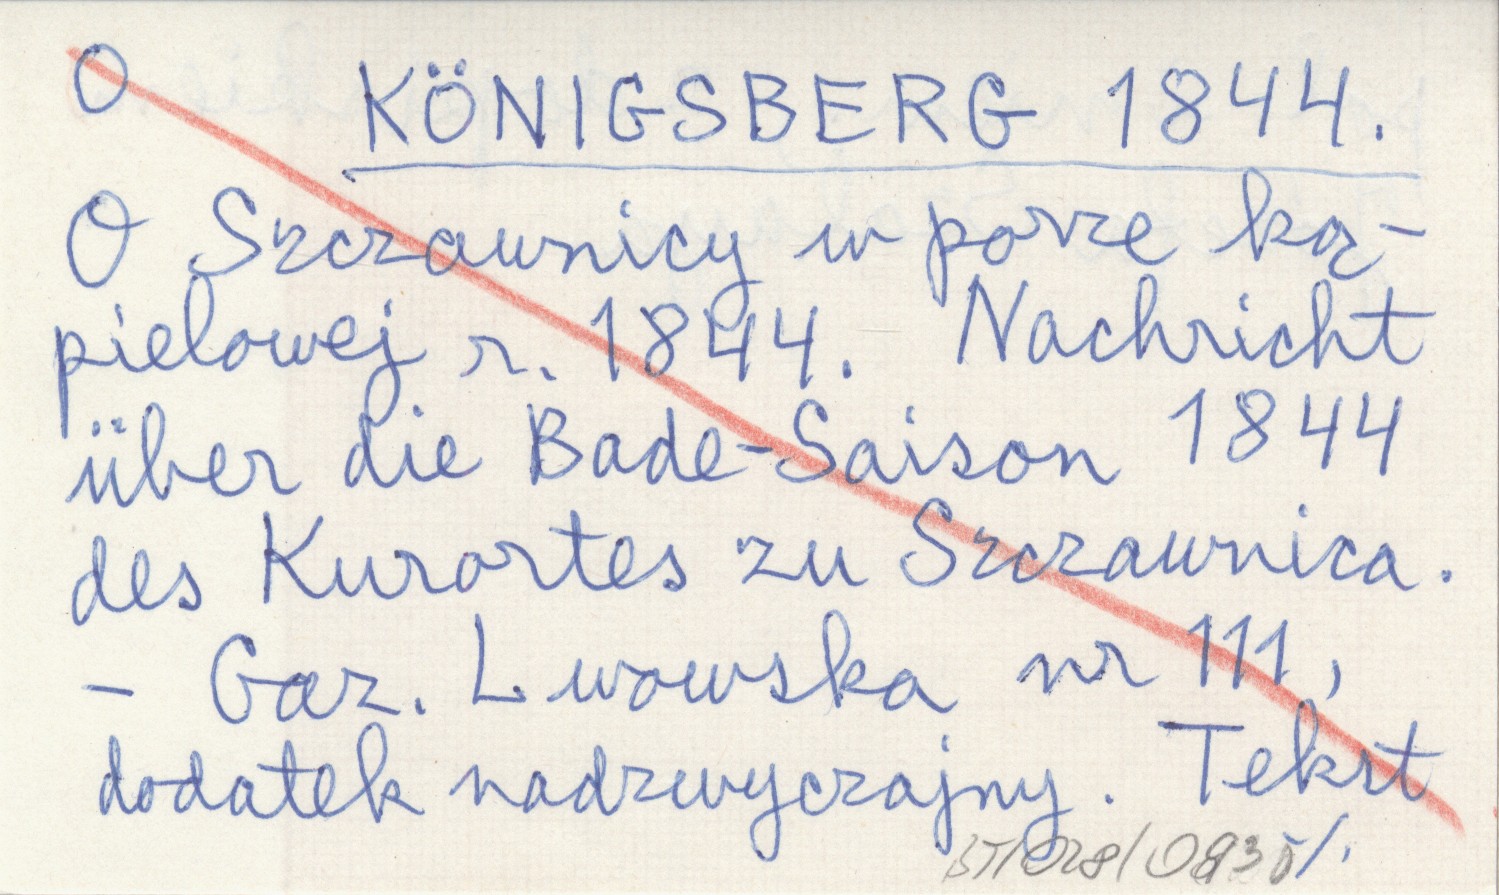 O KÖNIGSBERG 1844.
O Szczawnicy w porze ką-
pielowej r. 1844. Nachricht
über die Bade-Saison 1844
des Kurortes zu Szczawnica.
- Gaz. Lwowska nr 111,
dodatek nadzwyczajny. Tekst
./.